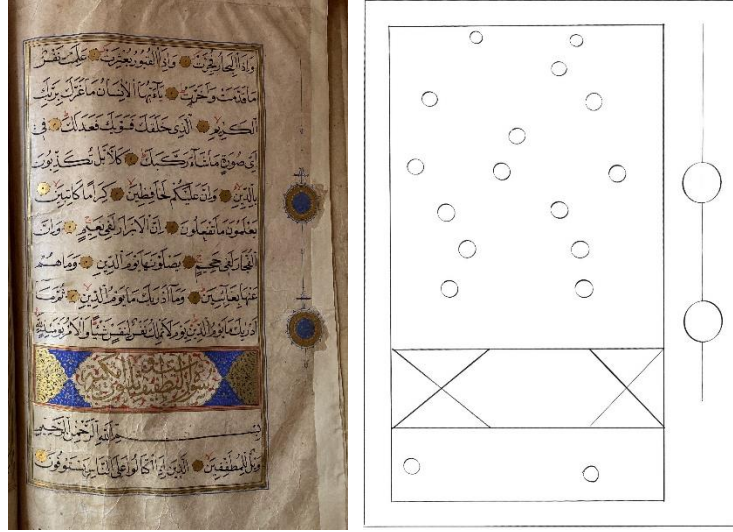 وَإِذَا الْبِحَارُ فُجِّرَتْ وَإِذَا الْقُبُورُ بُعْثِرَتْ عَلِمَتْ نَفْسٌ
مَا قَدَّمَتْ وَأَخَّرَتْ يَا أَيُّهَا الْإِنْسَانُ مَا غَرَّكَ بِرَبِّكَ
الْكَرِيمِ الَّذِي خَلَقَكَ فَسَوَّيكَ فَعَدَلَكَ فِي
أَيِّ صُورَةٍ مَا شَاءَ رَكَّبَكَ كَلَّا بَلْ تُكَذِّبُونَ
بِالدِّينِ وَإِنَّ عَلَيْكُمْ لَحَافِظِينَ كِرَامًا كَاتِبِينَ
يَعْلَمُونَ مَا تَفْعَلُونَ إِنَّ الْأَبْرَارَ لَفِي نَعِيمٍ وَإِنَّ
الْفُجَّارَ لَفِي جَحِيمٍ يَصْلَوْنَهَا يَوْمَ الدِّينِ وَمَا هُمْ
عَنْهَا بِغَائِبِينَ وَمَا أَدْرَيكَ مَا يَوْمُ الدِّينِ ثُمَّ مَا
أَدْرَيكَ مَا يَوْمُ الدِّينِ يَوْمَ لَا تَمْلِكُ نَفْسٌ لِنَفْسٍ شَيْئًا وَالْأَمْرُ يَوْمَئِذٍ لِلَّهِ
سورة المطففين
بِسْمِ اللَّهِ الرَّحْمٰنِ الرَّحِيمِ
وَيْلٌ لِلْمُطَفِّفِينَ الَّذِينَ إِذَا اكْتَالُوا عَلَى النَّاسِ يَسْتَوْفُونَ